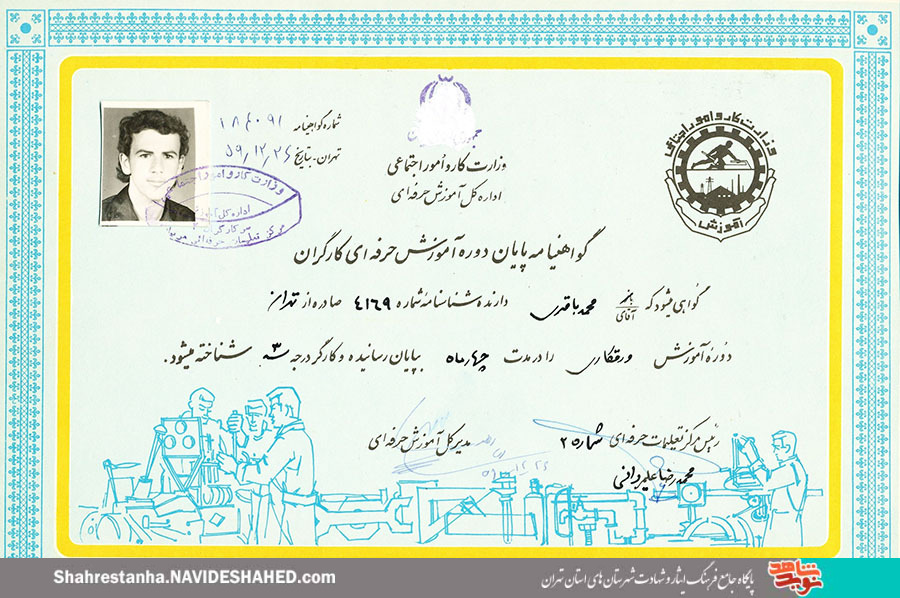 شماره گواهینامه ۱۸۴۰۹۱
تهران - بتاریخ ۵۹٫۱۲٫۲۶
وزارت کار و امور اجتماعی
اداره کل آموزش حرفه‌ای
وزارت کار و امور اجتماعی
آموزش
وزارت کار و امور اجتما
اداره کل آموزش
گواهینامه پایان دوره آموزش حرفه‌ای کارگران
گواهی میشود که بانو آقای محمد باقدی دارنده شناسنامه شماره ۴۱۶۹ صادره از تهران
دوره آموزش ورقکاری را در مدت چهار ماه بپایان رسانیده و کارگر درجه ۳ سه شناخته میشود.
رئیس مرکز تعلیمات حرفه‌ای شماره ۲
مدیر کل آموزش حرفه‌ای
محمدرضا علیمردانی
Shahrestanha.NAVIDESHAHED.com
پایگاه جامع فرهنگ ایثار و شهادت شهرستان های استان تهران
نوید شاهد